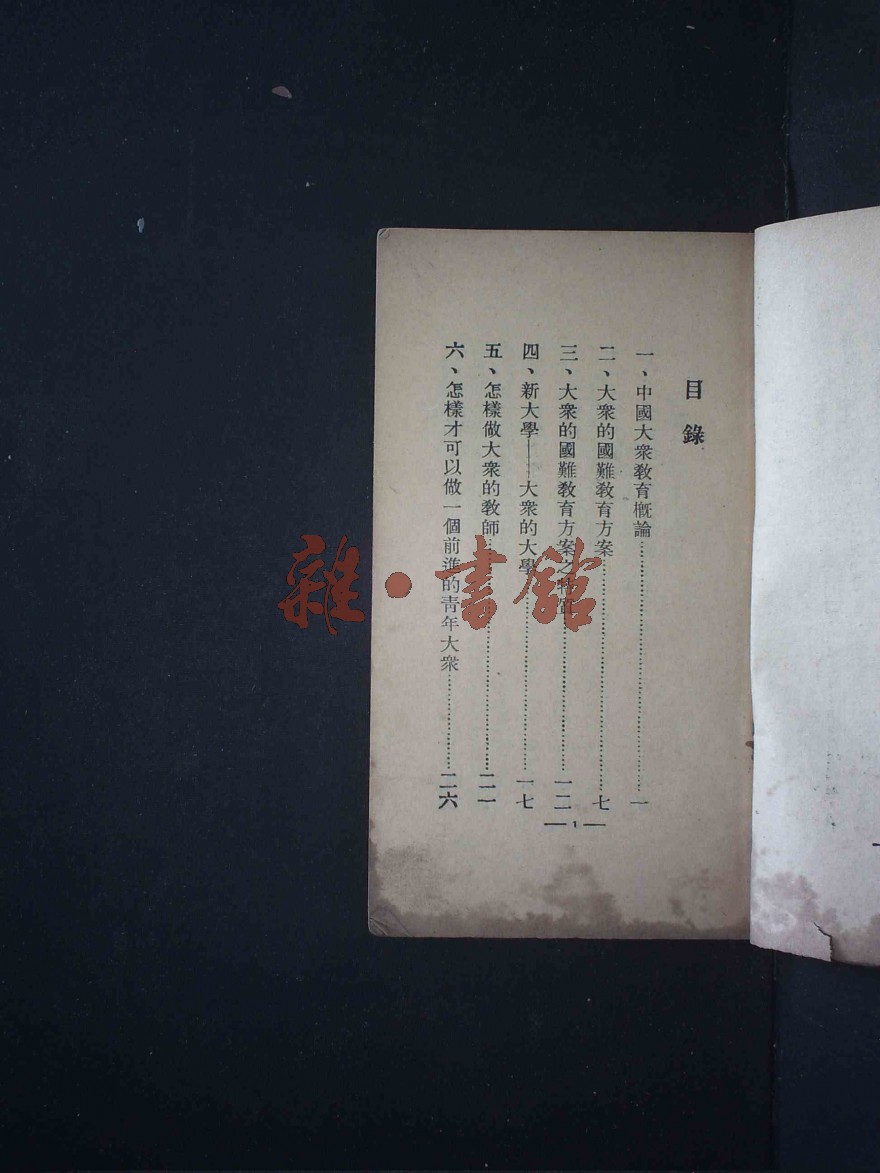 目錄
一、中國大衆教育概論……………………一
二、大衆的國難教育方案……………………七
三、大衆的國難教育方案之特質……………………一二
四、新大學——大衆的大學……………………一七
五、怎樣做大衆的教師……………………二一
六、怎樣才可以做一個前進的青年大衆……………………二六
— 1 —
雜·書館